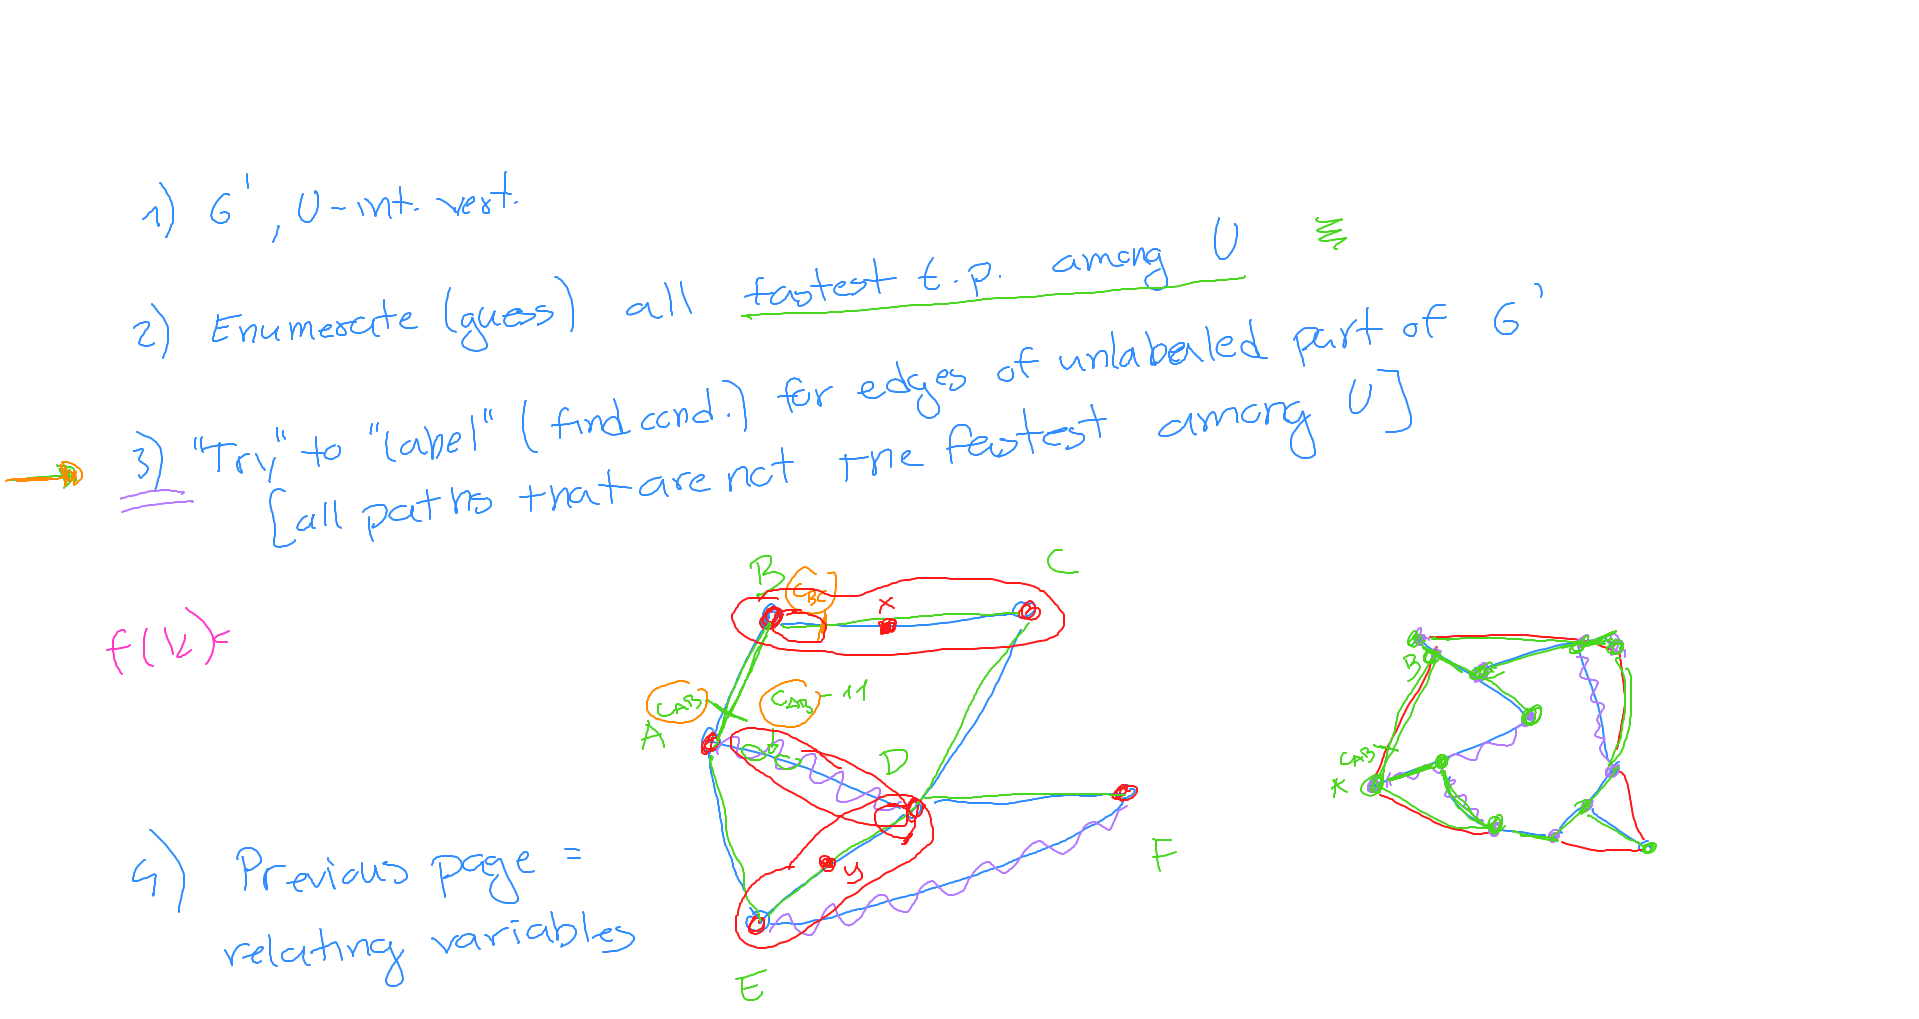 1) G', U-int. vert.
2) Enumerate (guess) all fastest t.p. among U
3) "Try" to "label" (find cond.) for edges of unlabeled part of G'
[all paths that are not the fastest among U]
B C_BC C
x
f(k)=
C_AB C_AB - 11
A
D
y
F
E
4) Previous page =
relating variables
B
C_AB
A